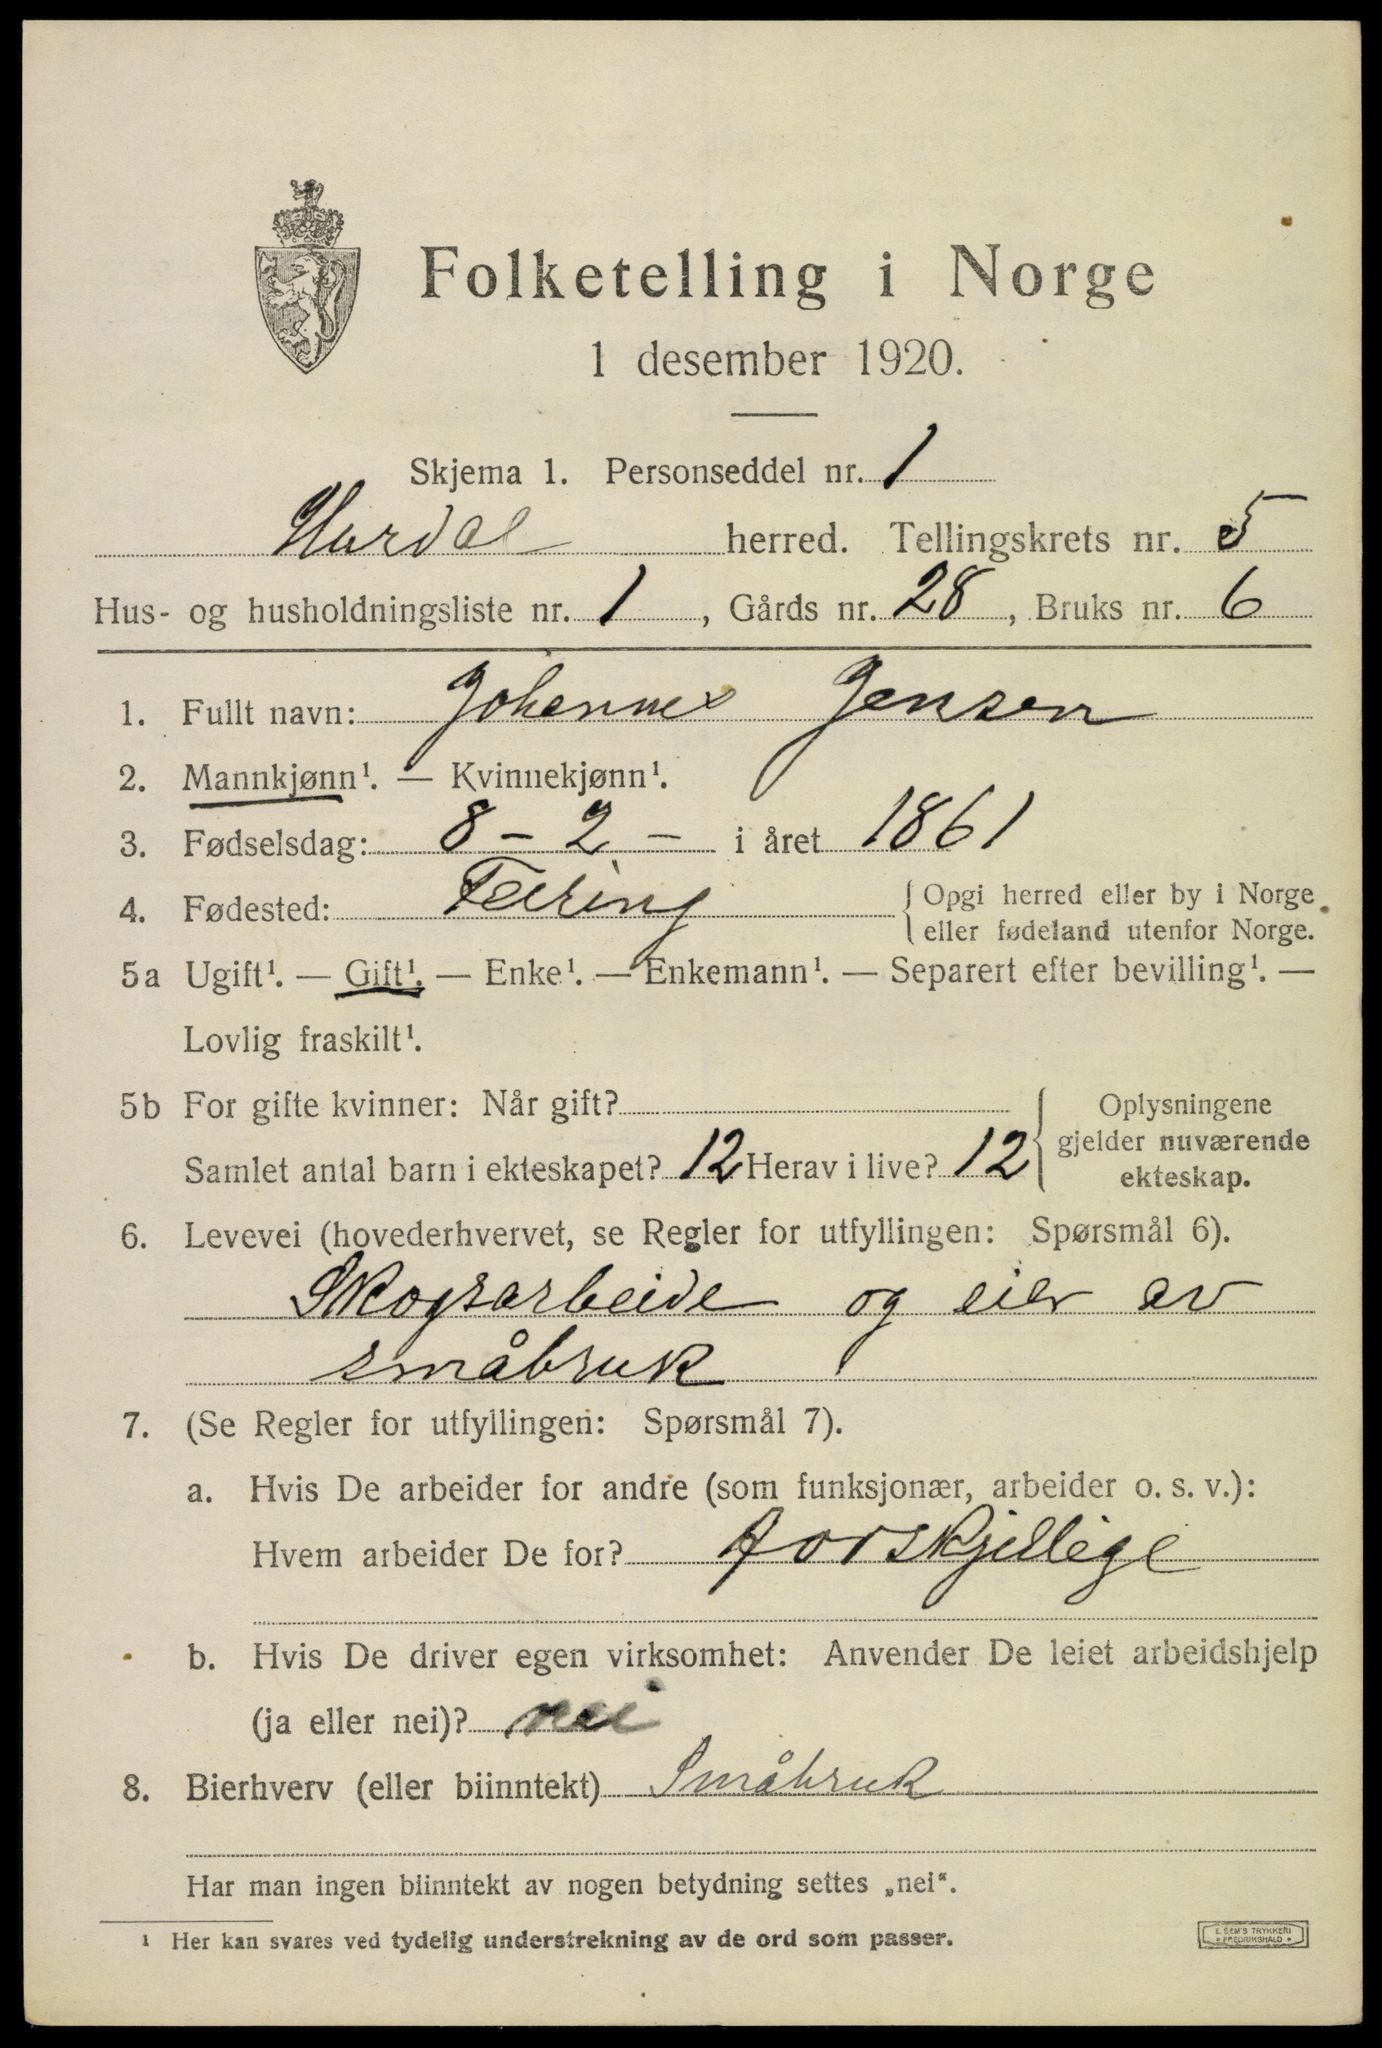 Folketelling i Norge
1 desember 1920.
Skjema 1. Personseddel nr. 1
Hurdal herred. Tellingskrets nr. 5
Hus- og husholdningsliste nr. 1, Gårds nr. 28, Bruks nr. 6
1. Fullt navn: Johannes Jensen
2. Mannkjønn¹. — Kvinnekjønn¹.
3. Fødselsdag: 8 - 2 - i året 1861
4. Fødested: Feiring { Opgi herred eller by i Norge
eller fødeland utenfor Norge.
5a Ugift¹. — Gift¹. — Enke¹. — Enkemann¹. — Separert efter bevilling¹. —
Lovlig fraskilt¹.
5b For gifte kvinner: Når gift? { Oplysningene
gjelder nuværende
Samlet antal barn i ekteskapet? 12 Herav i live? 12
ekteskap.
6. Levevei (hovederhvervet, se Regler for utfyllingen: Spørsmål 6).
Skogsarbeide og eier av
småbruk
7. (Se Regler for utfyllingen: Spørsmål 7).
a. Hvis De arbeider for andre (som funksjonær, arbeider o. s. v.):
Hvem arbeider De for? forskjellige
b. Hvis De driver egen virksomhet: Anvender De leiet arbeidshjelp
(ja eller nei)? nei
8. Bierhverv (eller biinntekt) Småbruk
Har man ingen biinntekt av nogen betydning settes „nei“.
¹ Her kan svares ved tydelig understrekning av de ord som passer.
E. SEM'S TRYKKERI
FREDRIKSHALD